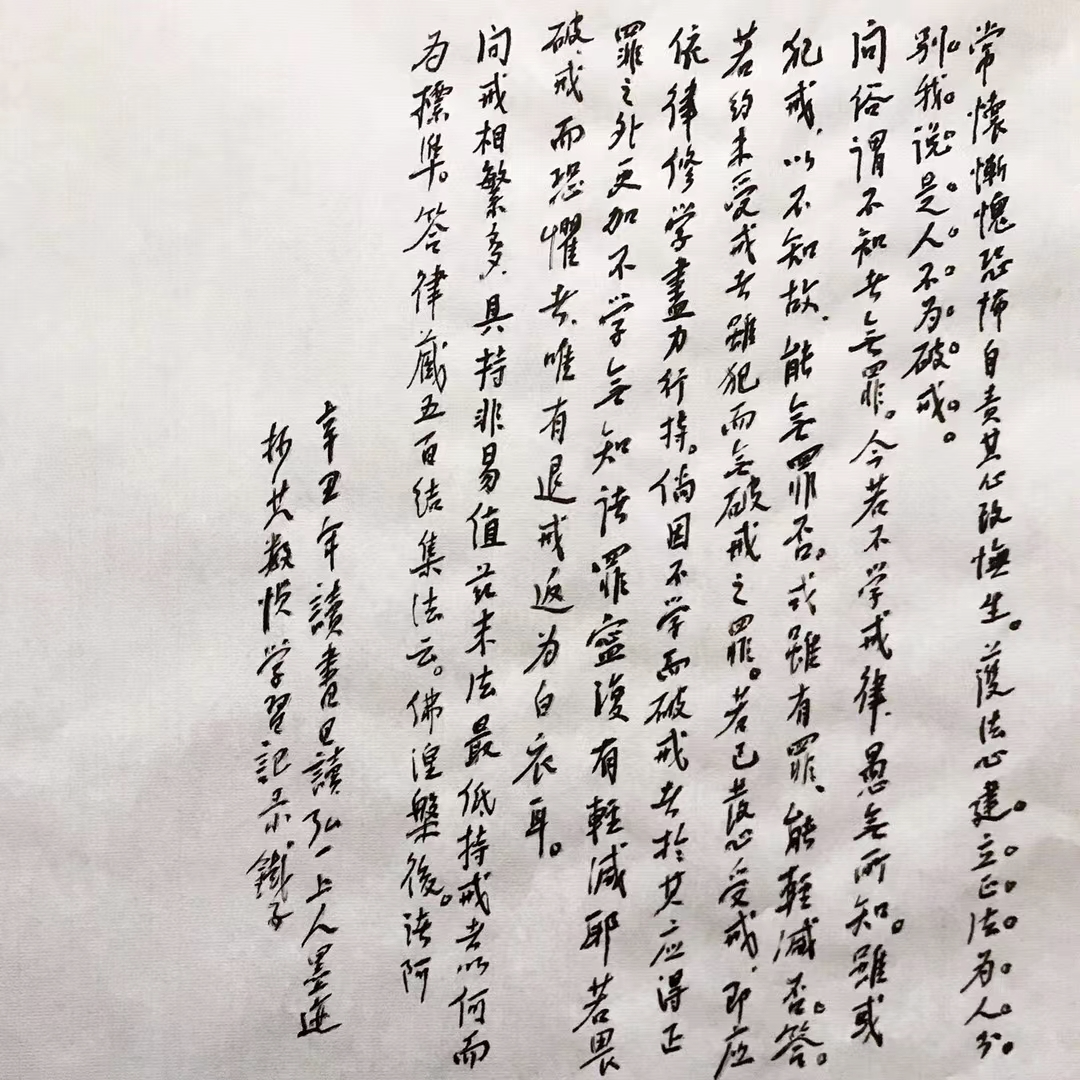 常懷慚愧恐怖自責其心改悔生。護法心建。立。正。法。为。人。分。
别。我。说。是。人。不。为。破。戒。
问俗谓不知者無罪。今若不学戒律、愚無所知。雖或
犯戒、以不知故、能無罪否。或雖有罪、能輕减否。答。
若约未受戒者雖犯而無破戒之罪。若已發心受戒、即应
依律修学盡力行持。倘因不学而破戒者於其应得正
罪之外更加不学無知诸罪寧復有輕减耶若畏
破戒而恐懼者、唯有退戒返为白衣耳。
问戒相繁多、具持非易值兹末法最低持戒者以何而
为標準。答律藏五百结集法云。佛涅槃後。诸阿
辛丑年讀書日讀弘一上人墨迹
抄其数慎学習記录。鐵子